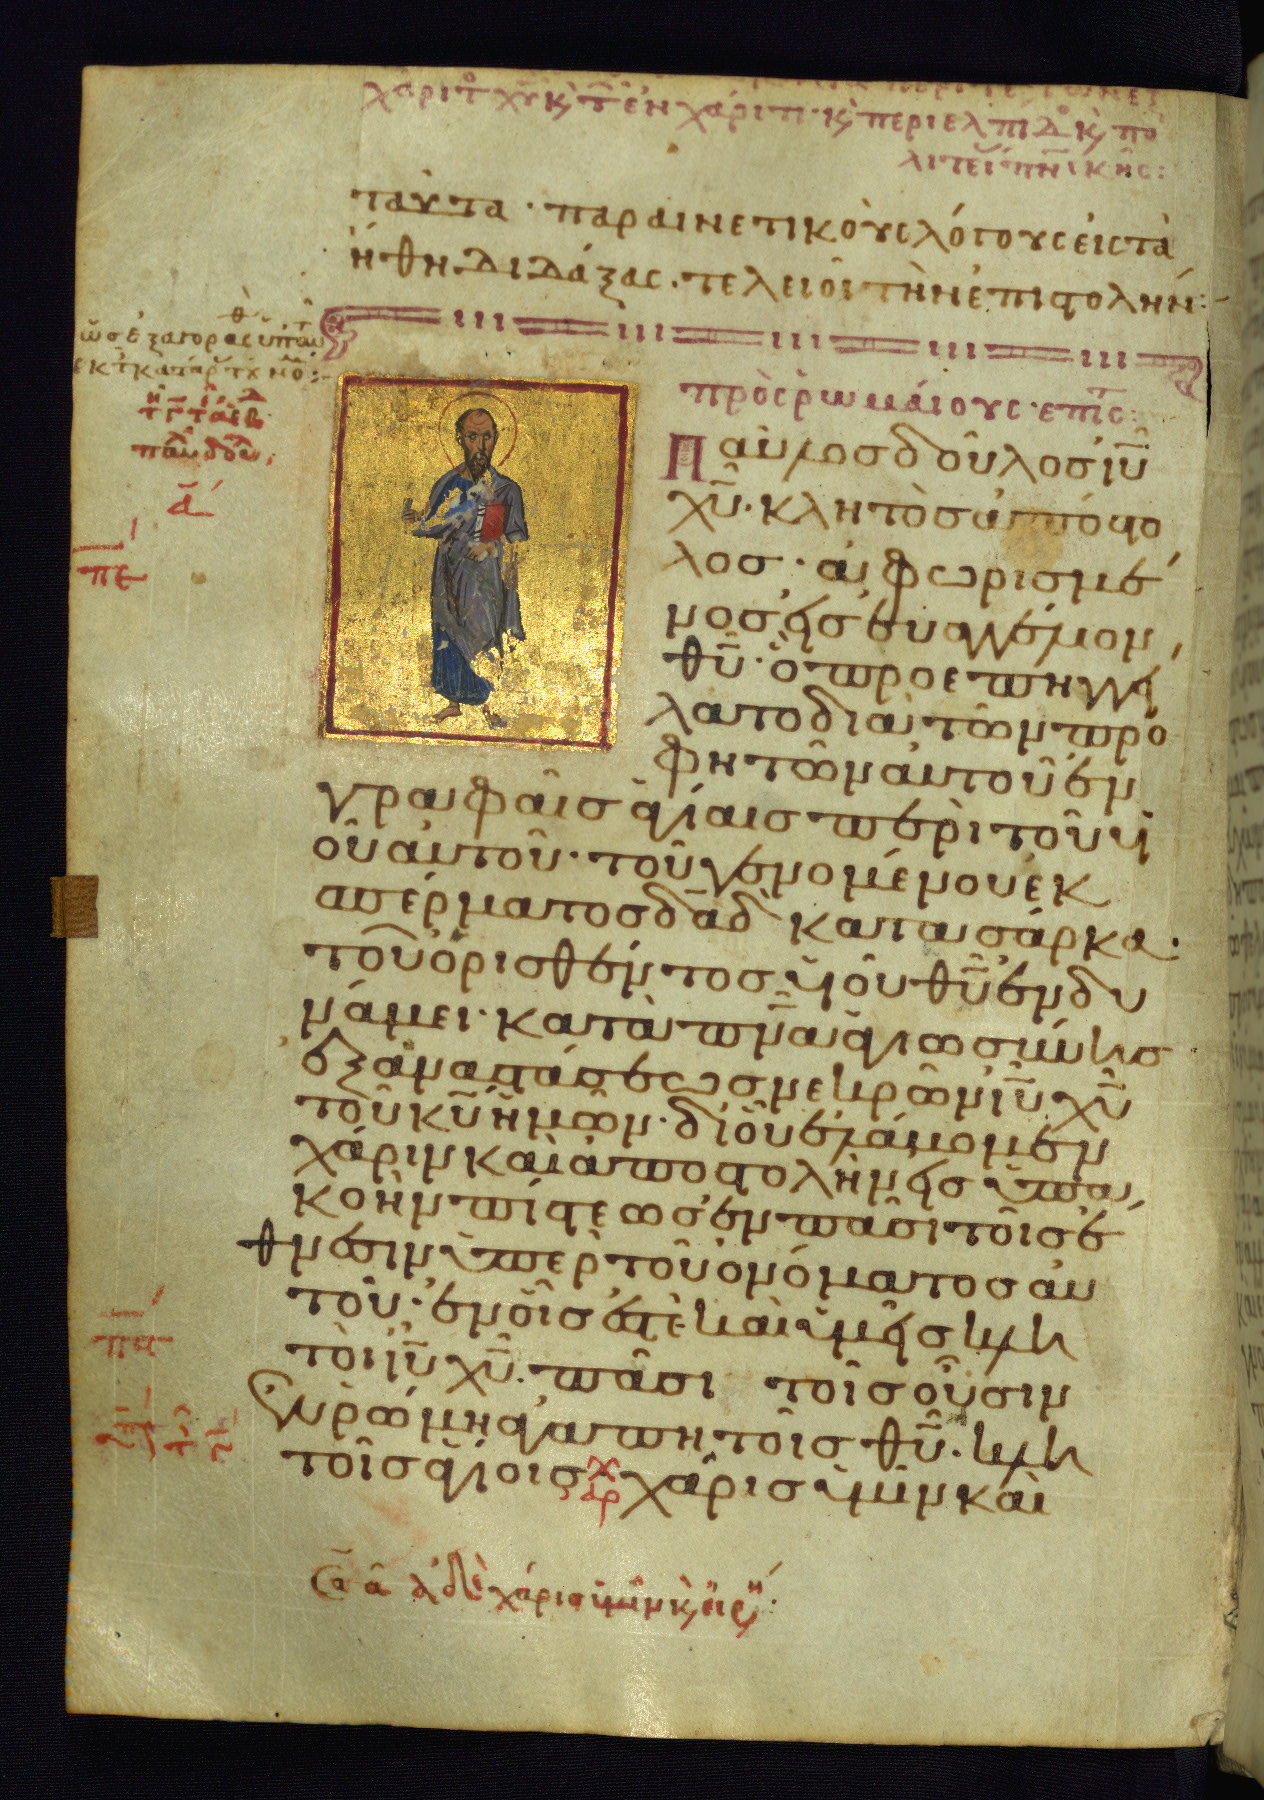 χάριτο χυ κ τ ἐν χάριτι· κ περι ελπίδο κ πο
λιτεί πνικης:
ταῦτα · παραινετικοὺς λόγους εἰς τὰ
ἤθη διδάξας · τελειοῖ τὴν ἐπιστολήν:
πρὸς ῥωμάιους · επις
Παῦλος δοῦλος ἰῦ
χῦ · κλητὸς ἀπόστο
λος · ἀφωρισμέ
νος εἰς ευαγγέλιον
θῦ · ὃ προεπηγγεί
λατο διὰ τῶν προ
φητῶν ἀυτοῦ ἐν
γραφαῖς ἁγίαις περὶ τοῦ υἱ
οῦ ἀυτοῦ · τοῦ γενομένου ἐκ
σπέρματος δαδ κατα σάρκα ·
τοῦ ὁρισθέντος υἱοῦ θῦ ἐν δυ
νάμει · κατὰ πνα ἁγιωσύνης
ἐξ ἀναστάσεως νεκρῶν ἰῦ χῦ
τοῦ κῦ ἡμῶν · δι οὗ ἐλάβομεν
χάριν καὶ ἀποστολὴν εἰς ὑπα
κοὴν πίστεως ἐν πᾶσι τοῖς ἔ
θνεσιν ὑπὲρ τοῦ ὀνόματος ἀυ
τοῦ · ἐν οἷς ἐστὲ καὶ ὑμεῖς κλη
τοὶ ἰῦ χῦ · πᾶσι τοῖς οὖσιν
ἐν ῥώμη ἀγαπητοῖς θῦ · κλη
τοῖς ἁγίοις χάρις ὑμῖν καὶ
χάρις ὑμῖν κ εἰρή